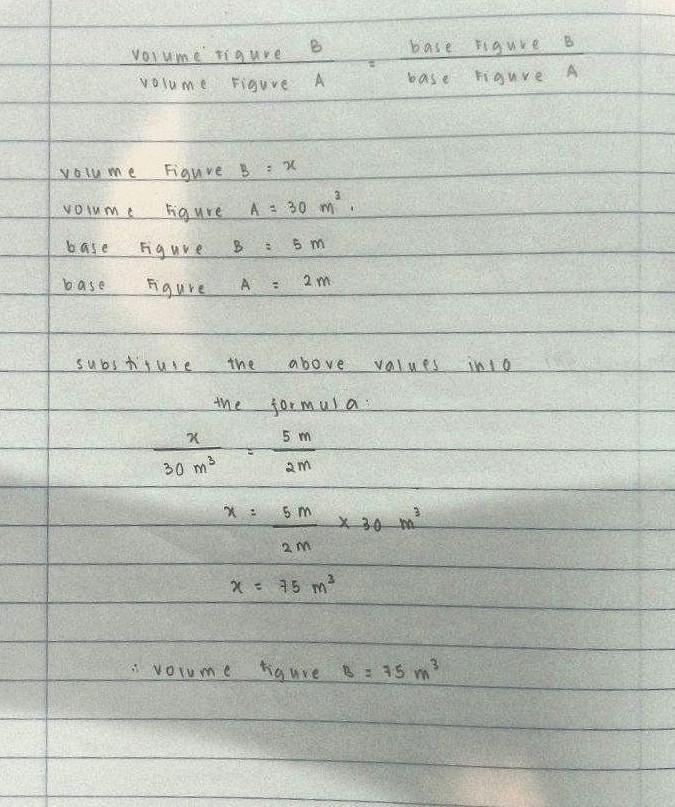 volume figure B / volume Figure A = base Figure B / base Figure A
volume Figure B = x
volume figure A = 30 m³.
base Figure B = 5 m
base Figure A = 2m
substitute the above values into
the formula:
x / 30 m³ = 5 m / 2m
x = 5 m / 2m × 30 m³
x = 75 m³
∴ volume figure B = 75 m³